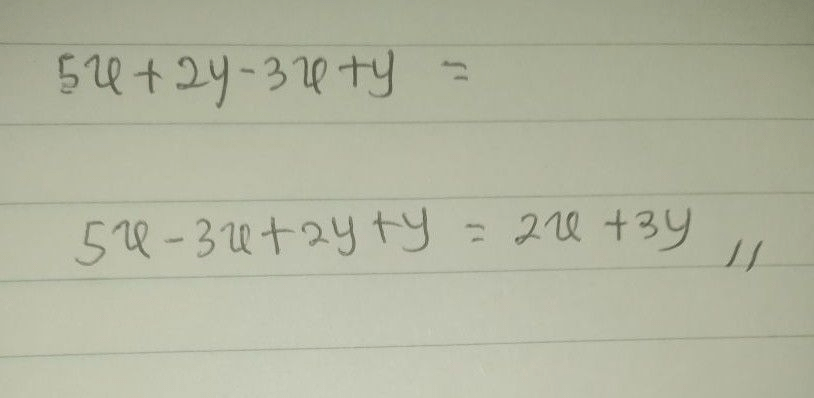 5x + 2y - 3x + y =
5x - 3x + 2y + y = 2x + 3y //